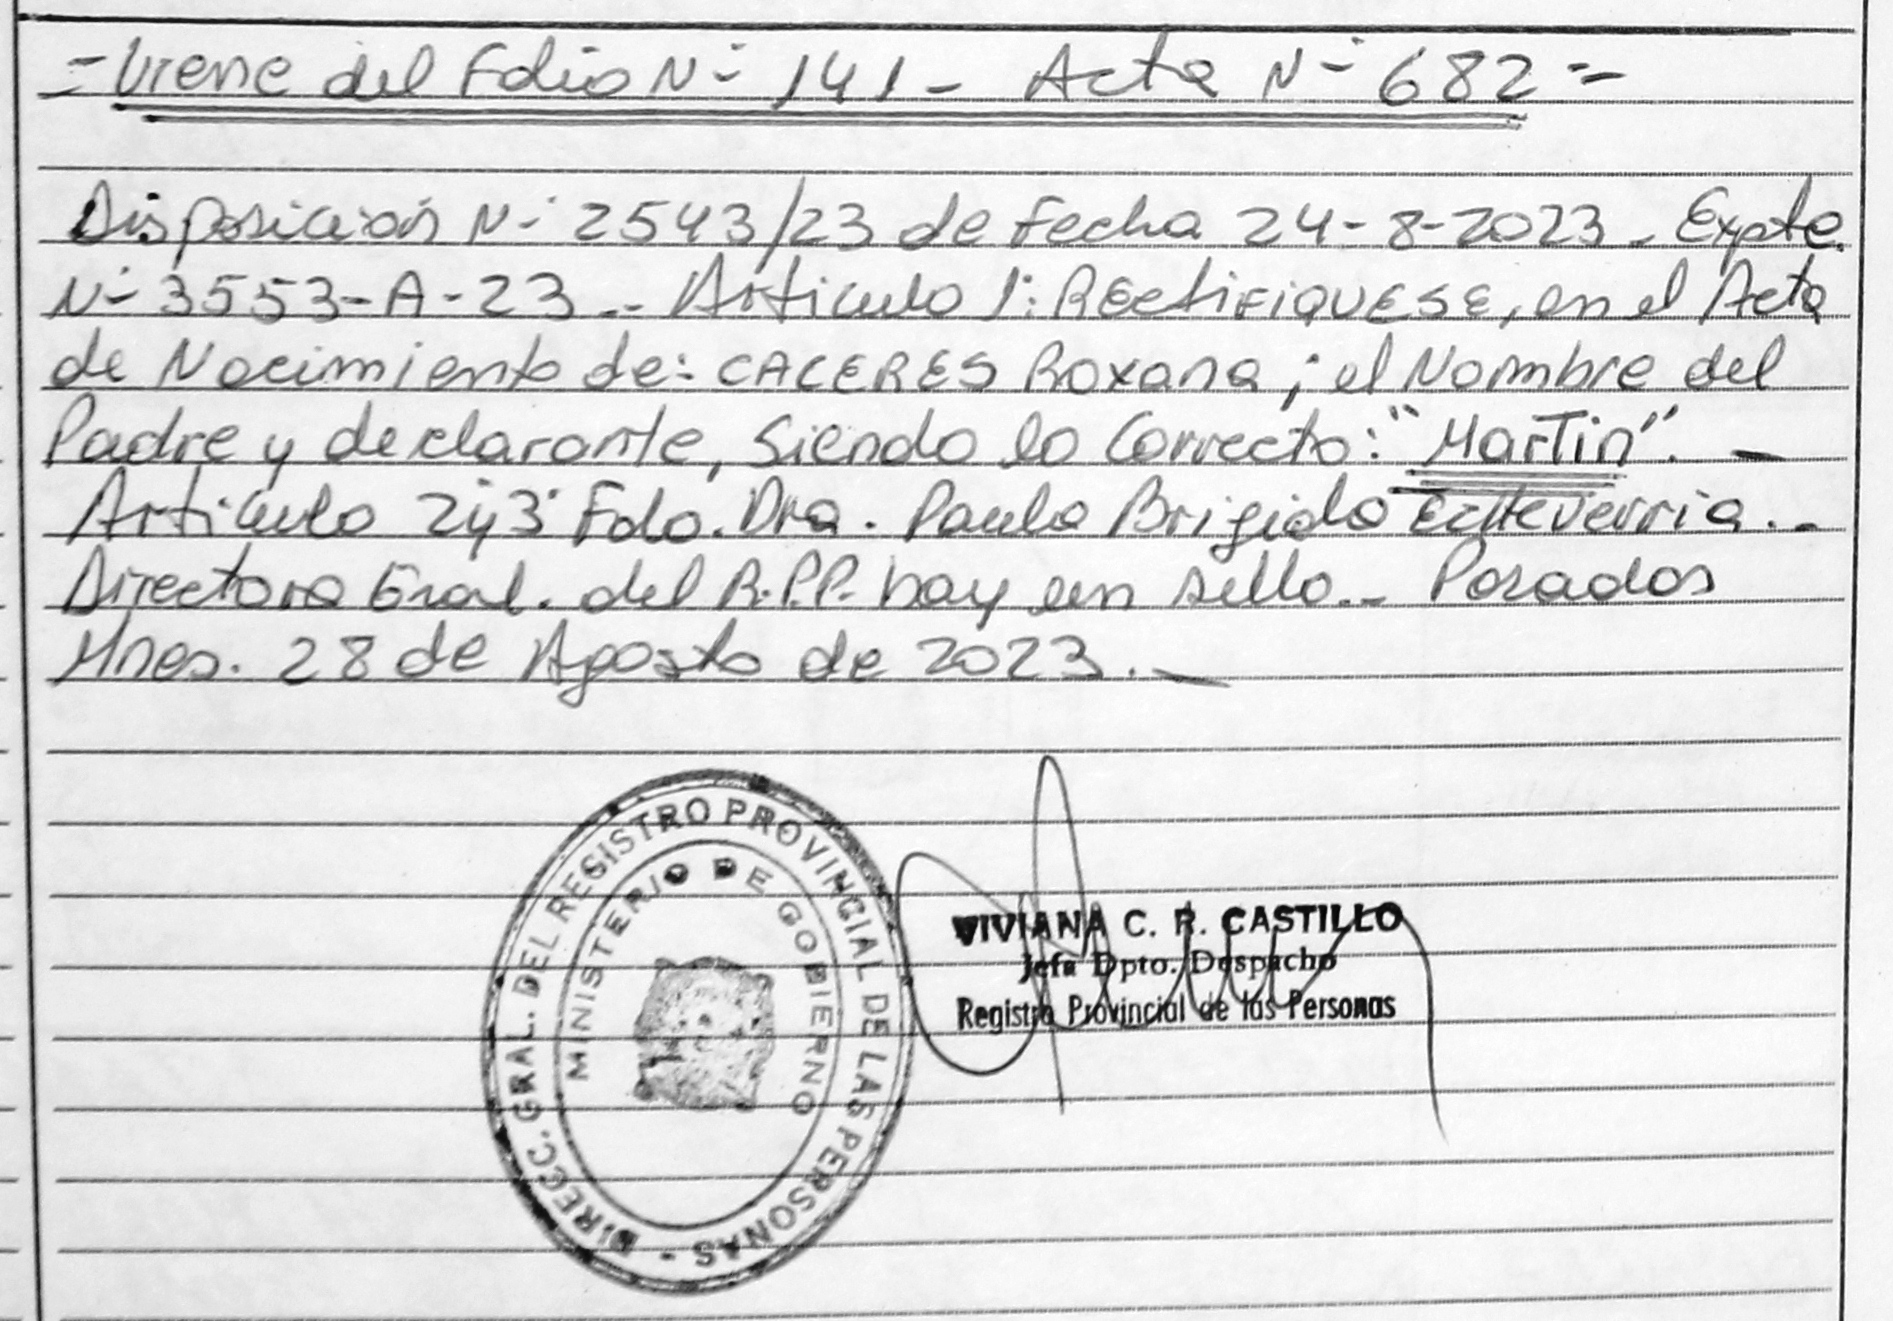 = Viene del Folio N- 141 - Acta N- 682 =-
Disposición N- 2543/23 de Fecha 24-8-2023 - Expte.
N- 3553-A-23 -- Articulo 1°: RECtiFIQUESE, en el Acta
de Nacimiento de: CACERES Roxana ; el Nombre del
Padre y declarante, Siendo lo Correcto: "Martin". -
Articulo 2 y 3° Fdo. Dra. Paula Brigida Echeverria. -
Directora Gral. del R.P.P. hay un sello. - Posadas
Mnes. 28 de Agosto de 2023. -
DIRECC. GRAL. DEL REGISTRO PROVINCIAL DE LAS PERSONAS -
MINISTERIO DE GOBIERNO
VIVIANA C. R. CASTILLO
Jefa Dpto. Despacho
Registro Provincial de las Personas